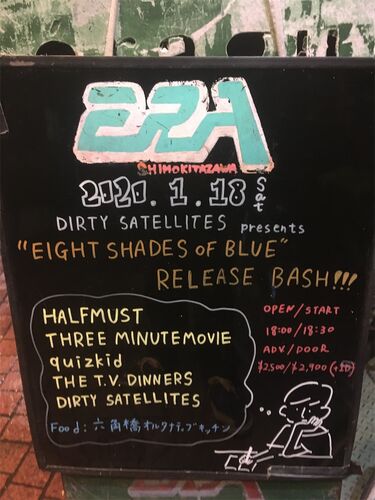 ERA
SHIMOKITAZAWA
2020.1.18 Sat
DIRTY SATELLITES presents
"EIGHT SHADES OF BLUE"
RELEASE BASH!!!
HALFMUST
THREE MINUTEMOVIE
quizkid
THE T.V. DINNERS
DIRTY SATELLITES
Food: 六角橋オルタナティブキッチン
OPEN/START
18:00/18:30
ADV/DOOR
¥2,500/¥2,900(+1D)